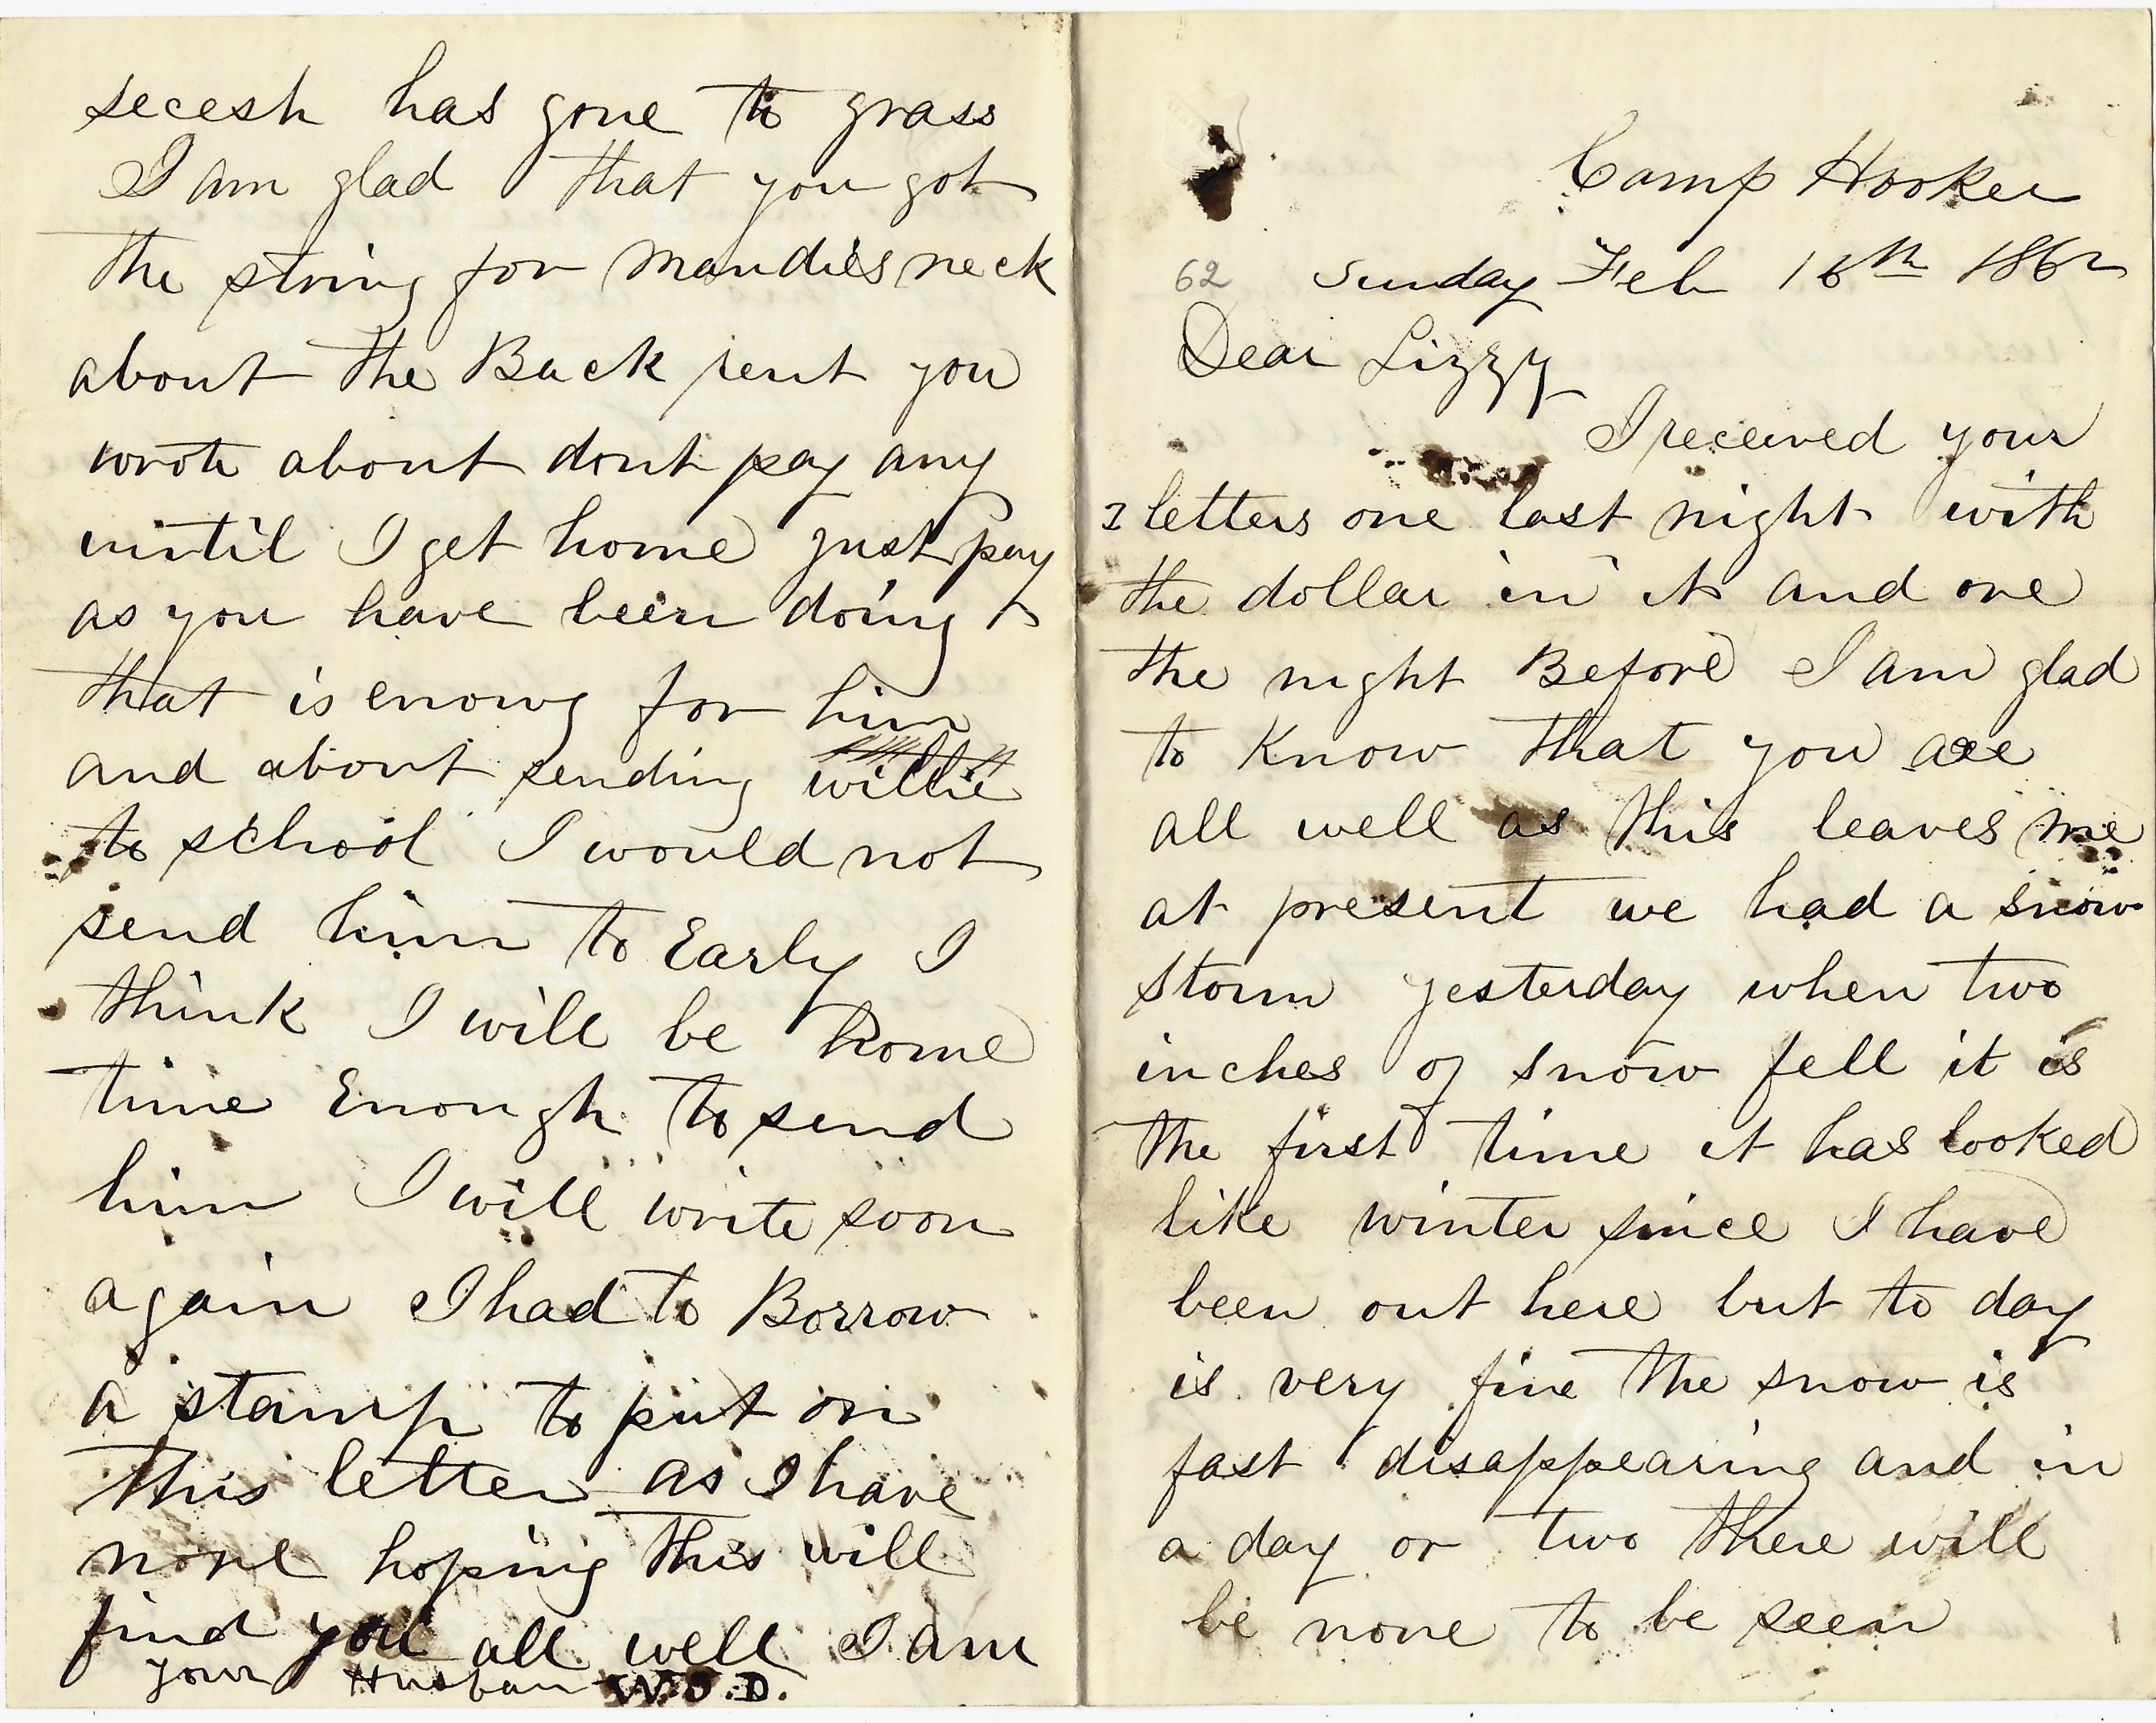 Camp Hooker
62 Sunday Feb 16th 1862
Dear Lizzy
I received your
2 letters one last night with
the dollar in it and one
the night Before I am glad
to Know that you are
all well as this leaves me
at present we had a snow
storm yesterday when two
inches of snow fell it is
the first time it has looked
like winter since I have
been out here but to day
is very fine the snow is
fast disappearing and in
a day or two there will
be none to be seen
secesh has gone to grass
I am glad that you got
the string for Mandies neck
about the Back rent you
wrote about dont pay any
until I get home just pay
as you have been doing
that is enoug for him
and about sending willie
to school I would not
send him to Early I
think I will be home
time Enough to send
him I will write soon
again I had to Borrow
a stamp to put on
this letter as I have
none hoping this will
find you all well I am
your Husban W.O.D.